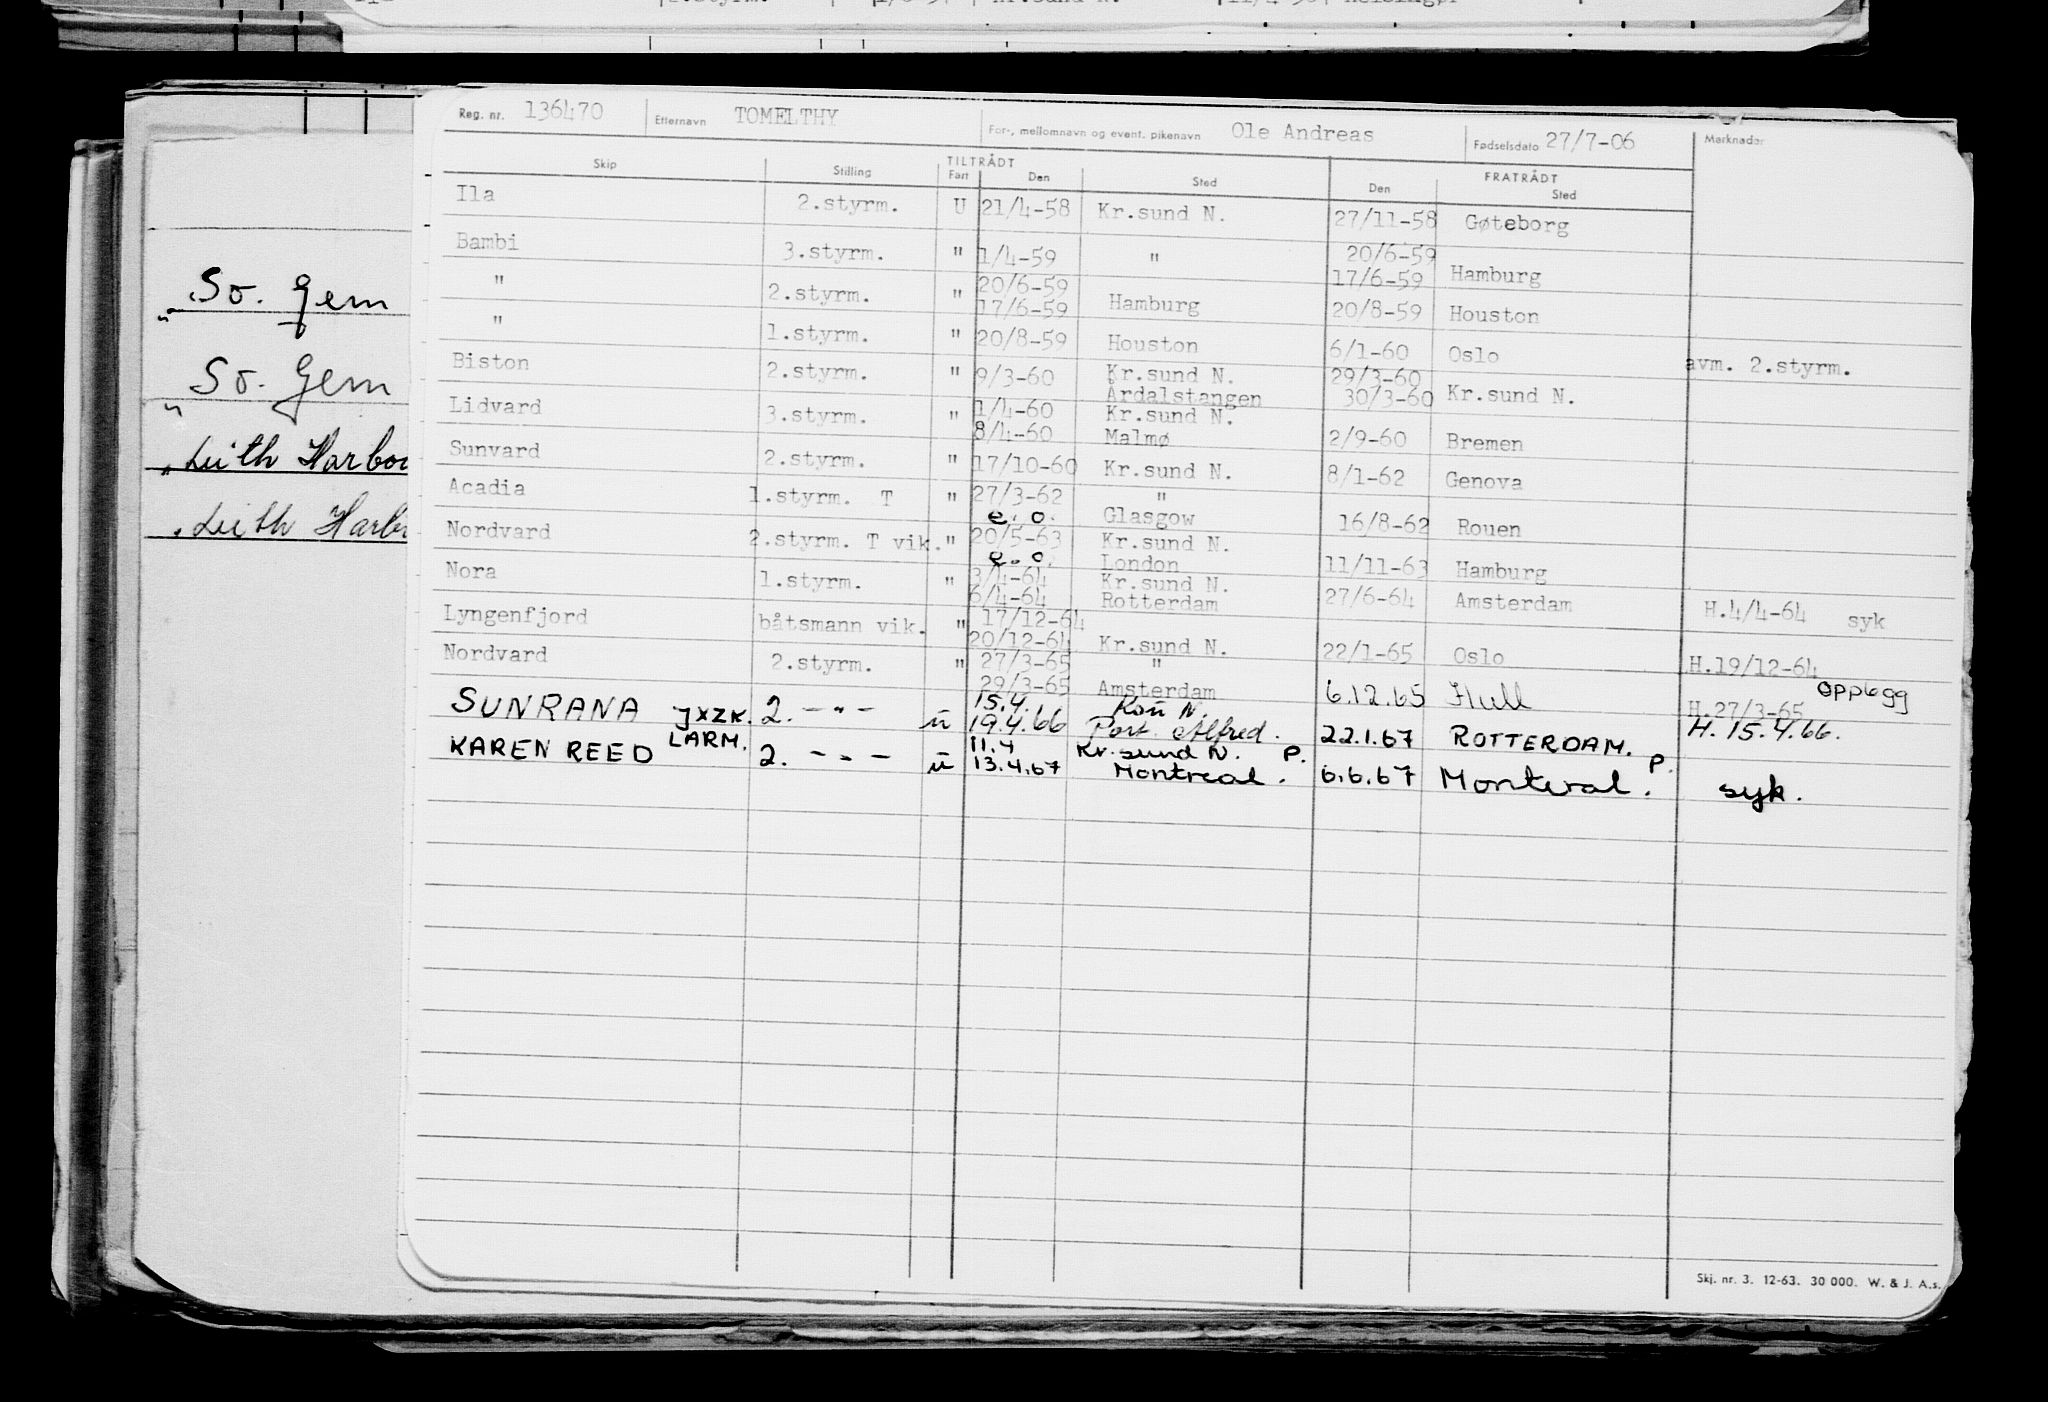 Reg. nr. 136470 Etternavn TOMELTHY For-, mellomnavn og event. pikenavn Ole Andreas Fødselsdato 27/7-06 Merknader
TILTRÅDT FRATRÅDT
Skip Stilling Fart Den Sted Den Sted
Ila 2.styrm. U 21/4-58 Kr.sund N. 27/11-58 Gøteborg
Bambi 3.styrm. " 1/4-59 " 20/6-59
17/6-59 Hamburg
" 2.styrm. " 20/6-59
17/6-59 Hamburg 20/8-59 Houston
" 1.styrm. " 20/8-59 Houston 6/1-60 Oslo avm. 2.styrm.
Biston 2.styrm. " 9/3-60 Kr.sund N. 29/3-60
Årdalstangen 30/3-60 Kr.sund N.
Lidvard 3.styrm. " 1/4-60 Kr.sund N.
8/4-60 Malmø 2/9-60 Bremen
Sunvard 2.styrm. " 17/10-60 Kr.sund N. 8/1-62 Genova
Acadia 1.styrm. T " 27/3-62 "
e.o. Glasgow 16/8-62 Rouen
Nordvard 2.styrm. T vik. " 20/5-63 Kr.sund N.
e.o. London 11/11-63 Hamburg
Nora 1.styrm. " 3/4-64 Kr.sund N.
6/4-64 Rotterdam 27/6-64 Amsterdam H.4/4-64 syk
Lyngenfjord båtsmann vik. " 17/12-64
20/12-64 Kr.sund N. 22/1-65 Oslo H.19/12-64
Nordvard 2.styrm. " 27/3-65 "
29/3-65 Amsterdam 6.12.65 Hull H.27/3-65 opplegg
SUNRANA JXZK. 2. -"- u 15.4. N.
19.4.66 Port Alfred. 22.1.67 ROTTERDAM. H. 15.4.66.
KAREN REED LARM. 2. -"- u 11.4 Kr.sund N. P.
13.4.67 Montreal. 6.6.67 Montreal. P. syk.
Skj. nr. 3. 12-63. 30 000. W. & J. A.s.
So. Gem
" So. Gem
" Leith
" Leith